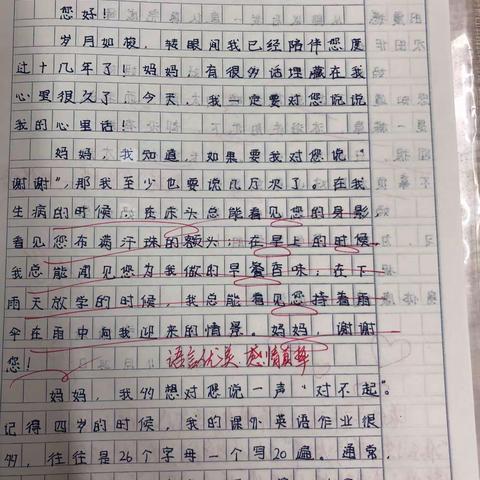 您好!
岁月如梭,转眼间我已经陪伴您度
过十几年了!妈妈,有很多话埋藏在我
心里很久了,今天,我一定要对您说说
我的心里话!
妈妈,我知道,如果要我对您说“
谢谢”,那我至少也要说几万次了。在我
生病的时候,在床头总能看见您的身影,
看见您布满汗珠的额头;在早上的时候
我总能闻见您为我做的早餐香味;在下
雨天放学的时候,我总能看见您持着雨
伞在雨中向我迎来的情景。妈妈,谢谢
您!
语言优美,感情真挚
妈妈,我想对您说一声“对不起”。
记得四岁的时候,我的课外英语作业很
多,往往是26个字母一个写20遍。通常,